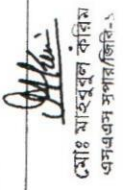 মোঃ মাহবুবুল করিম
এসএএস সুপার/জিবি-১